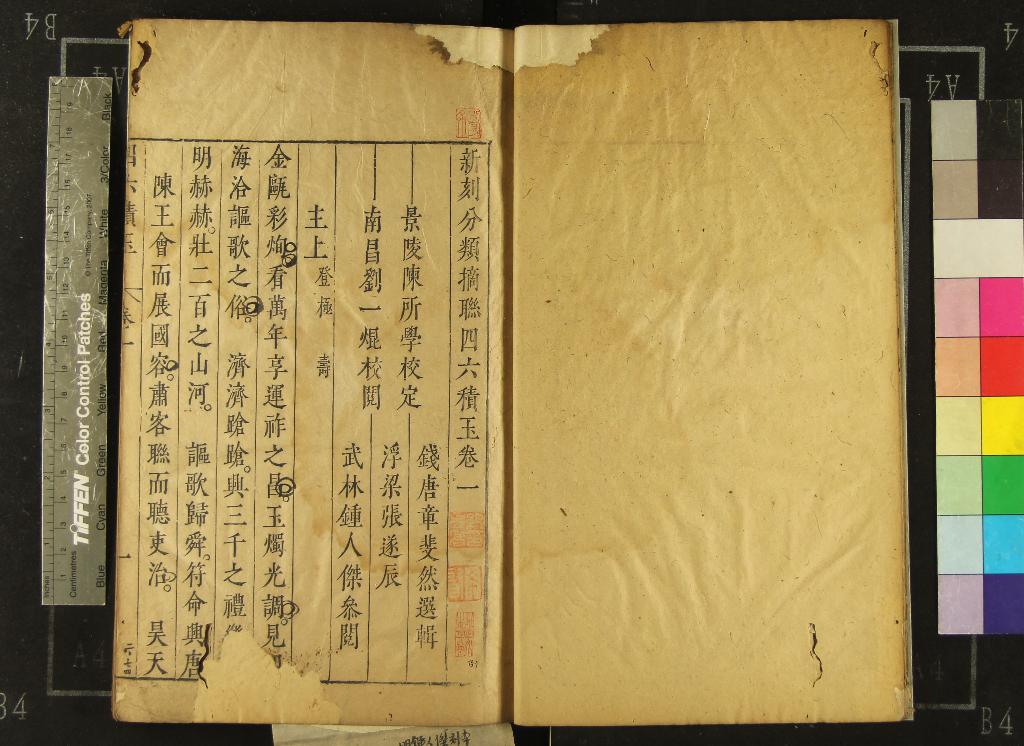 新刻分類摘聯四六積玉卷一
錢唐章斐然選輯
景陵陳所學校定
浮梁張遂辰
南昌劉一焜校閱
武林鍾人傑參閱
主上 登極 壽
金甌彩絢看萬年享運祚之昌。玉燭光調。見
海洽謳歌之俗。 濟濟蹌蹌。興三千之禮
明赫赫。壯二百之山河。 謳歌歸舜。符命興唐
陳王會而展國容。肅客聯而聽吏治。 昊天
卷一
一
TIFFEN Color Control Patches
© The Tiffen Company, 2007
Inches
Centimetres
Blue Cyan Green Yellow Red Magenta White 3/Color Black
B4
A4
A4
B4
A4
4
A4
B4